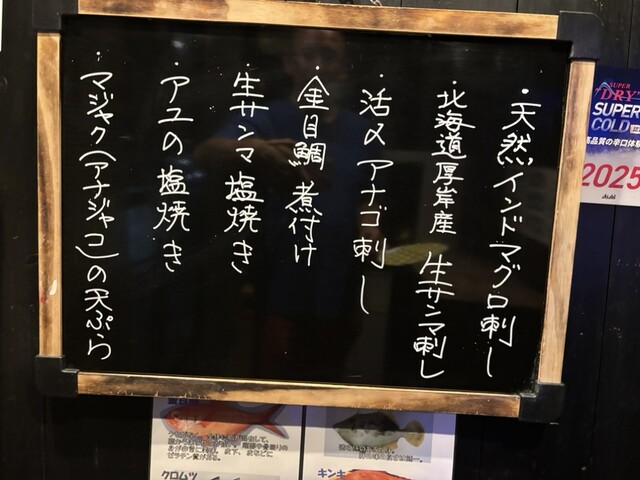 ・天然インドマグロ刺し
・北海道厚岸産 生サンマ刺し
・活〆アナゴ刺し
・金目鯛煮付け
・生サンマ塩焼き
・アユの塩焼き
・マジャク(アナジャコ)の天ぷら
SUPER
"DRY"
SUPER
COLD
高品質の辛口体験
2025
Asahi
クロムツ
キンキ